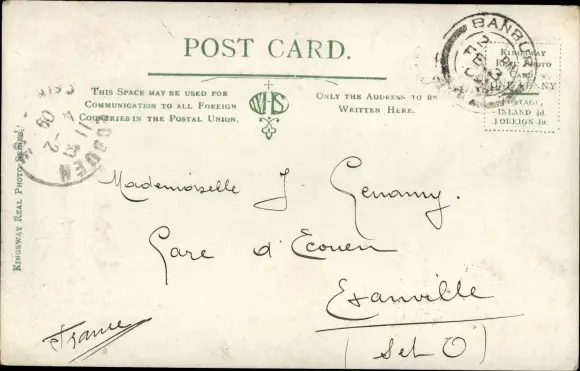 POST CARD.
THIS SPACE MAY BE USED FOR
COMMUNICATION TO ALL FOREIGN
COUNTRIES IN THE POSTAL UNION.
WHS
ONLY THE ADDRESS TO BE
WRITTEN HERE.
BANBURY
FE
09
KINGSWAY
REAL PHOTO
POSTAGE,
INLAND ½d.
FOREIGN 1d.
ECOUEN
11
4-2
09
KINGSWAY REAL PHOTO
Mademoiselle J. Genamy.
Gare d'Ecouen
Ezanville
(Set O)
France